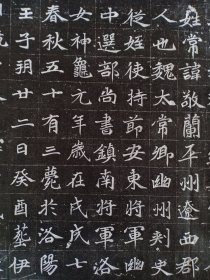 姓常諱敬蘭平州遼西郡
人也魏太常卿幽州刺史
從姪使持節安東將軍幽
中選部尚書鎮南將軍洛
女神龜元年歲在戊戌七
春秋五十有三薨於洛陽
壬子朔廿二日癸酉塟伊